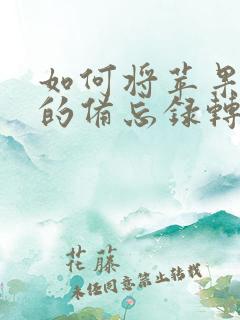 如何将苹果
的备忘录转
花藤
未经同意禁止转载